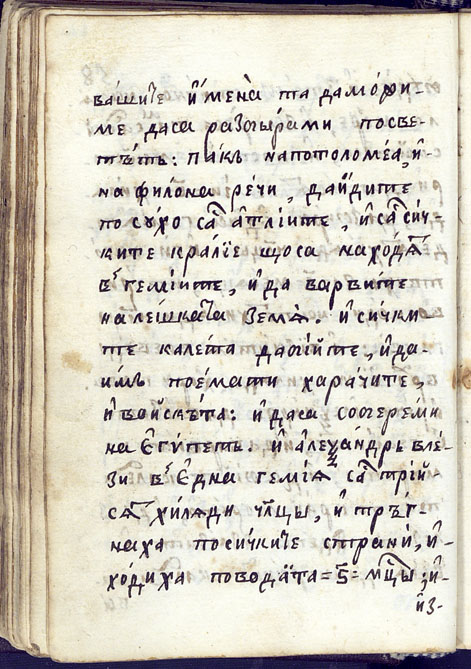 ва́шите и҆мена̀ та да мо́жи-
ме да са разⷭ҇ты́рами по све-
тътъ: па́къ на потоломе́а, и҆-
на фило́на ре́чи, да и҆́дите
по су́хо са а҆тліите, и҆ са си́ч-
ките кра́лїе що са нахо́дѧ
в геміите, и҆ да варви́те
на ле́шката земѧ̀, и҆ сички
те кале́та да   и҆ да-
и҆мъ пое́мати хара́чите,
и҆ войскъта: и҆ да са со   ереми́
на Є҆гѵ́петъ. и҆ а҆леѯа́ндръ влѐ-
зи в е҆́дна гемі́ѧ са трі́й-
сѧ хи́лѧди чл҃цы, и҆ тръ́г-
наха по си́чките страни́, и҆-
хо́диха по вода́та = ѕ҃ = мц҃ы, и҆-
и҆з-